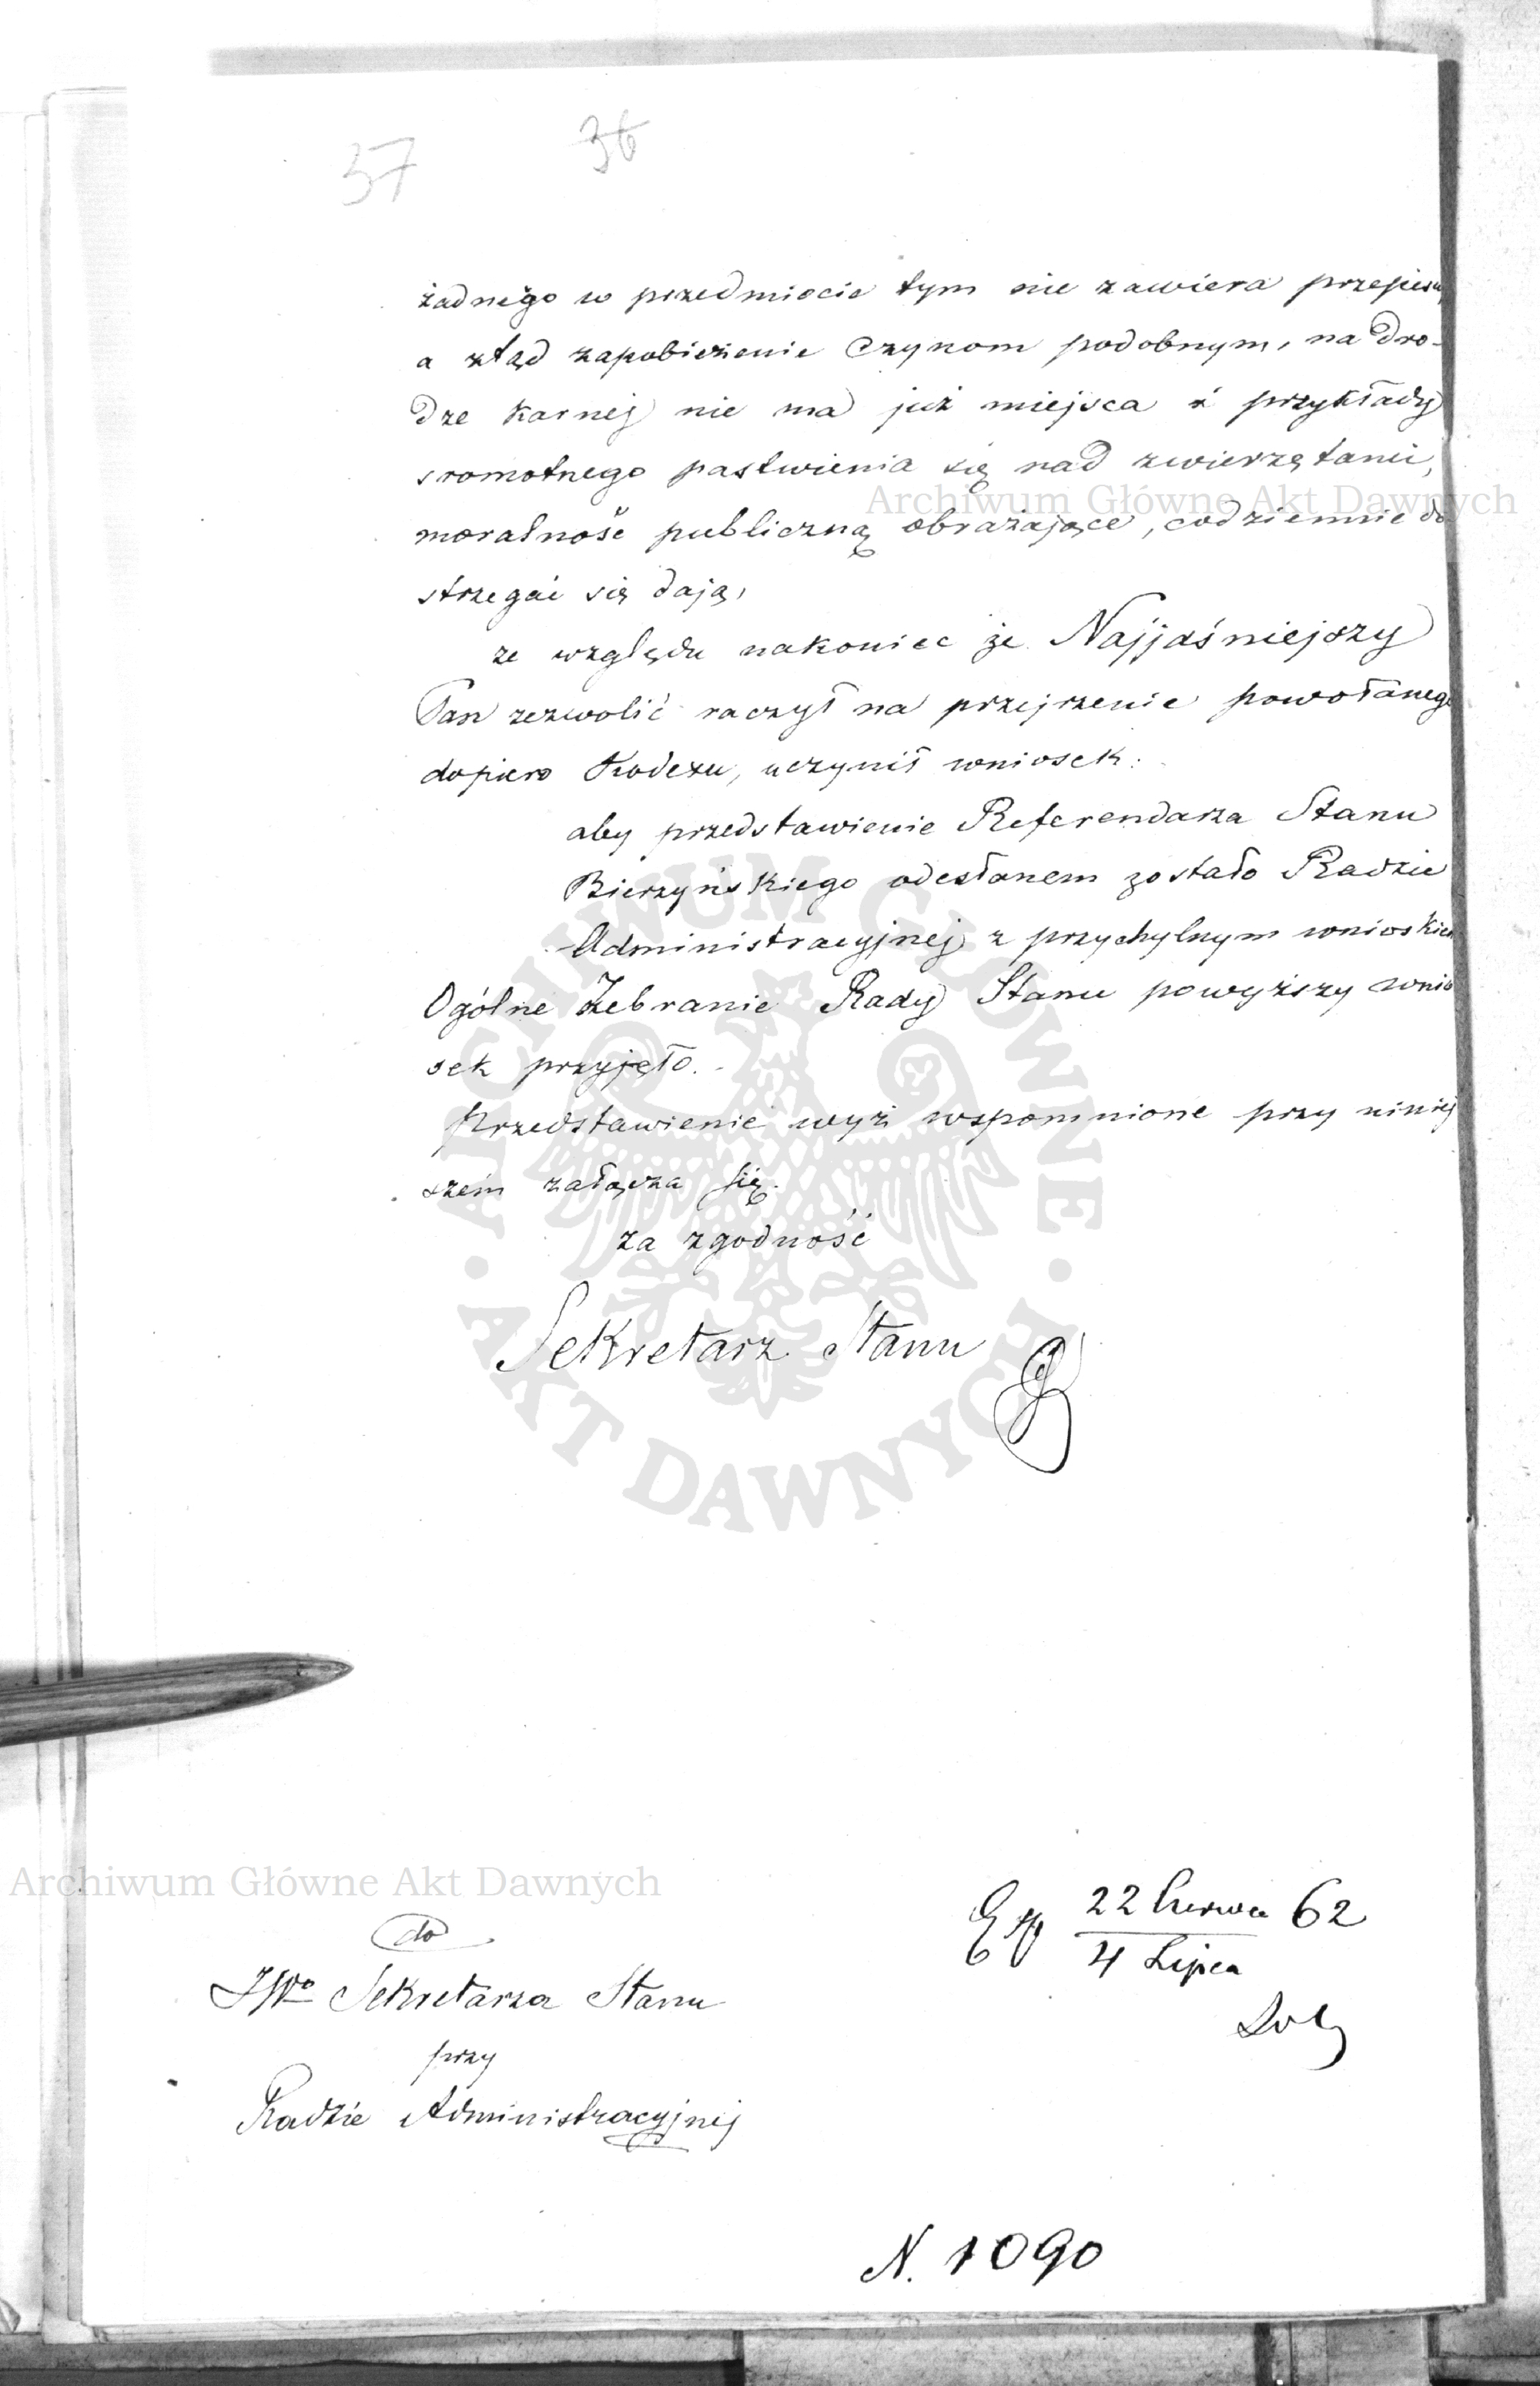 37 36
żadnego w przedmiocie tym nie zawiera przepisu,
a ztąd zapobieżenie czynom podobnym, na dro-
dze karnej nie ma już miejsca i przykłady
sromotnego pastwienia się nad zwierzętami,
Archiwum Główne Akt Dawnych
moralność publiczną obrażające, codziennie do
strzegać się dają,
ze względu nakoniec że Najjaśniejszy
Pan zezwolić raczył na przejrzenie powołanego
dopiero Kodexu, uczynił wniosek:
aby przedstawienie Referendarza Stanu
Bierzyńskiego odesłanem zostało Radzie
Administracyjnej z przychylnym wnioskiem
Ogólne Zebranie Rady Stanu powyższy wnio
sek przyjęło.
Przedstawienie wyż wspomnione przy niniej
szem załącza się.
za zgodność
Sekretarz Stanu
ARCHIWUM GŁÓWNE • AKT DAWNYCH •
Archiwum Główne Akt Dawnych
do
JWo Sekretarza Stanu
przy
Radzie Administracyjnej
22 Czerwca 62
4 Lipca
N. 1090